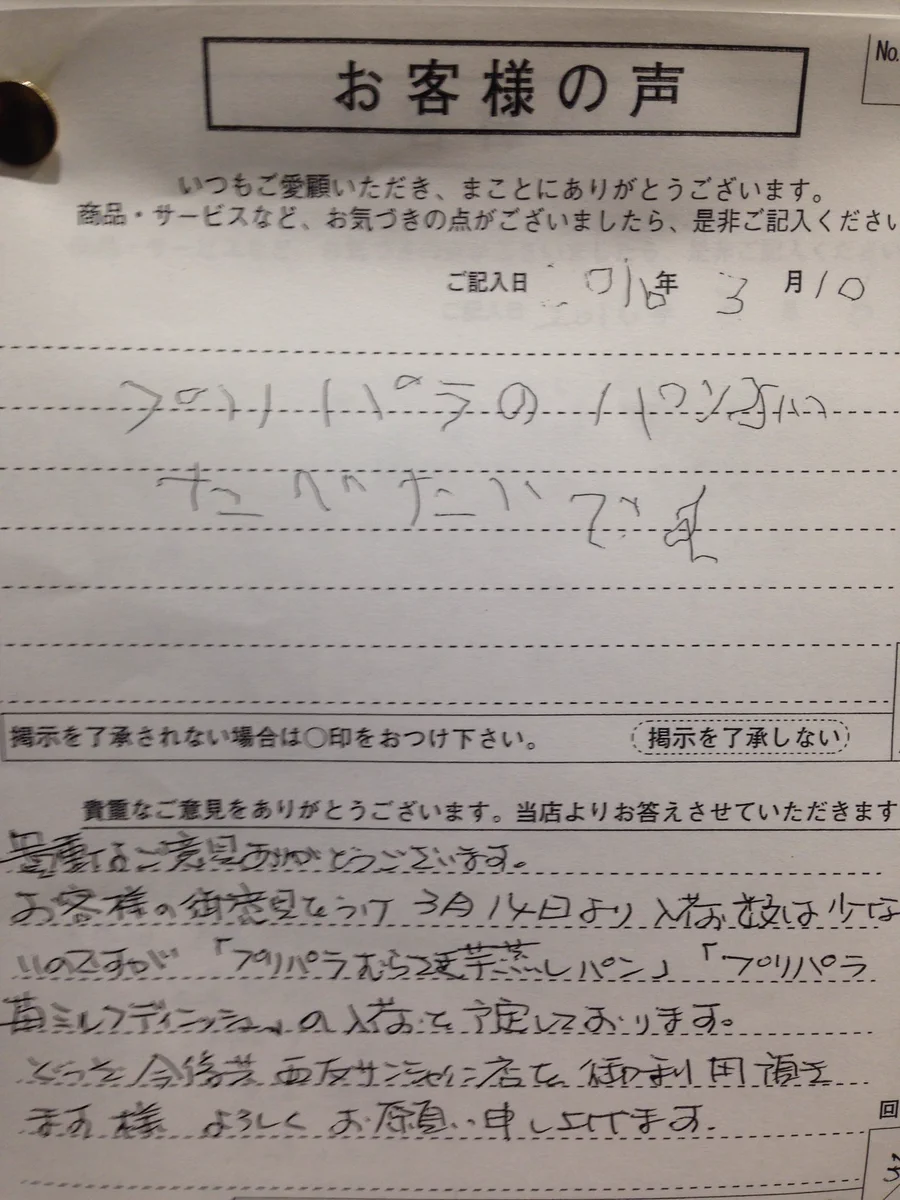 No.
お客様の声
いつもご愛顧いただき、まことにありがとうございます。
商品・サービスなど、お気づきの点がございましたら、是非ご記入くださ
ご記入日 2016年 3月10
プリパラのパンが
たべたいです
掲示を了承されない場合は○印をおつけ下さい。 掲示を了承しない
貴重なご意見をありがとうございます。当店よりお答えさせていただきます
貴重なご意見ありがとうございます。
お客様の御意見をうけ 3月14日より 入荷数は少な
いのですが 「プリパラむらさき芋蒸しパン」「プリパラ
苺ミルクデニッシュ」の入荷を予定しております。
どうぞ今後共 西友サンシャイン店を御利用頂き
ます様 よろしくお願い申し上げます。
回